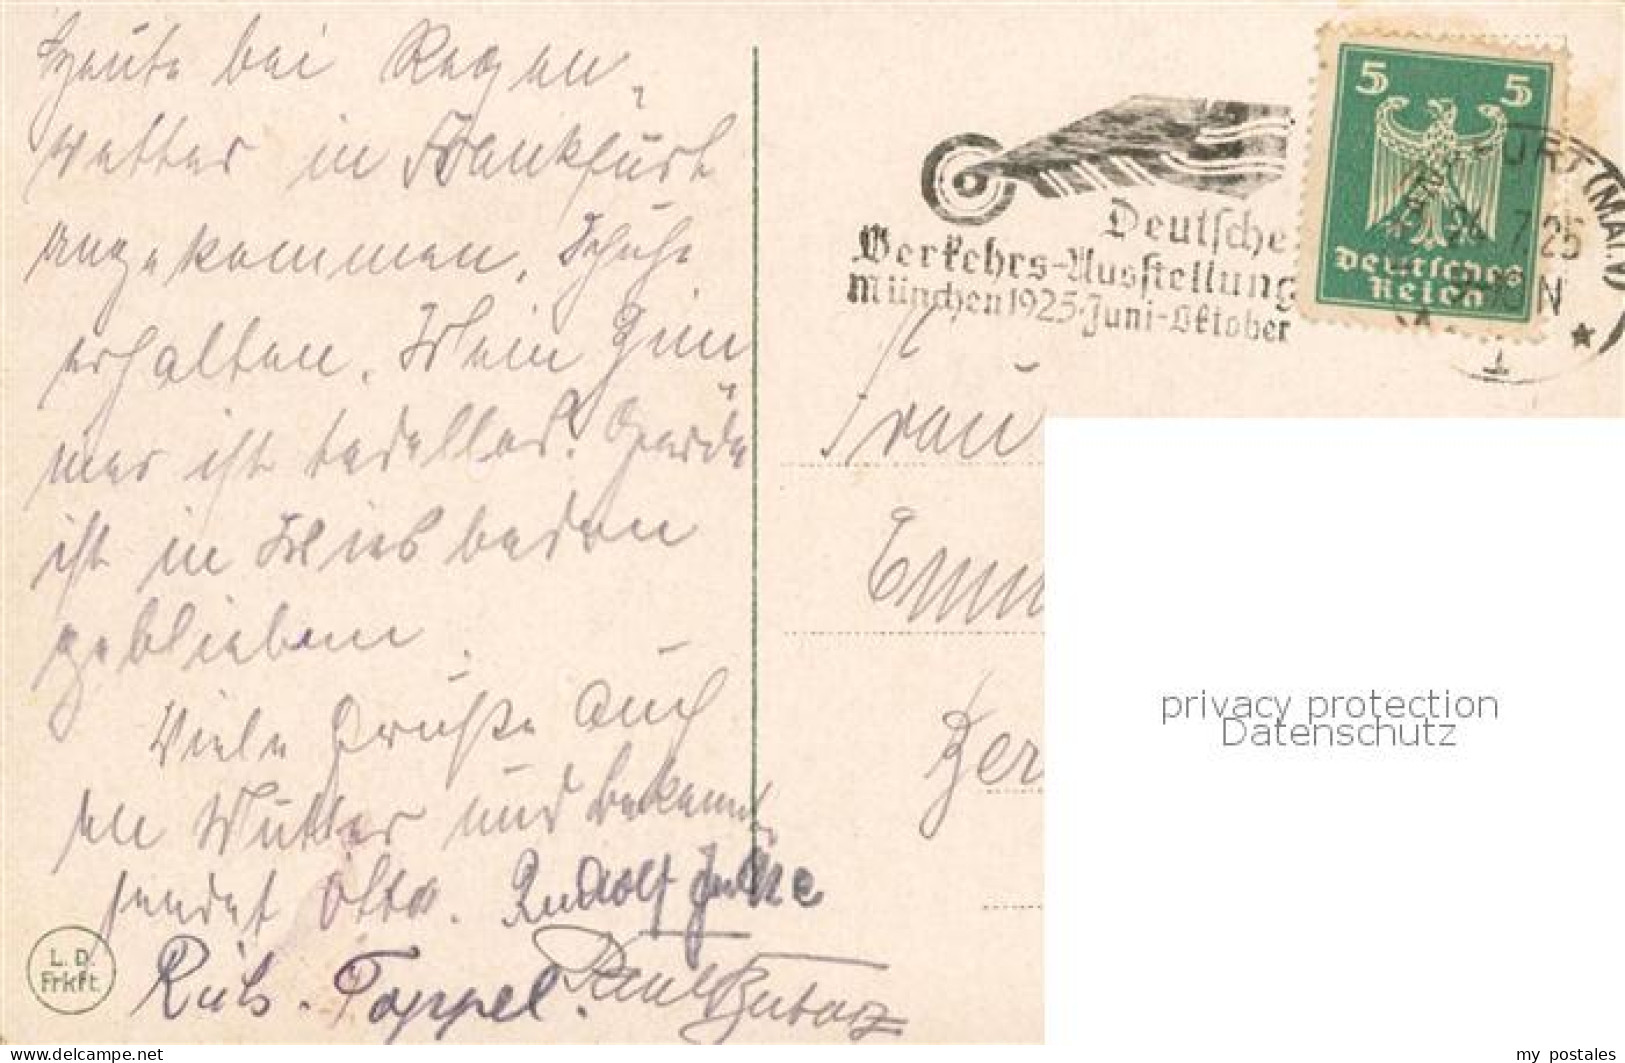 Heute bei Regen-
wetter in Frankfurt
angekommen. Schuhe
erhalten. Mein Zim-
mer ist tadellos.
ist in Wiesbaden
geblieben.
Viele Grüße auch
an Mutter und Bekannte
sendet Otto. Rudolf
Toppel. Paul
L. D.
Frkft.
Deutsche
Verkehrs-Ausstellung
München 1925 Juni-Oktober
5 5
Deutsches
Reich
FURT (MAIN)
24.7.25
9-10 N
1
Frau
Emm
Ber
privacy protection
Datenschutz
www.delcampe.net
my_postales